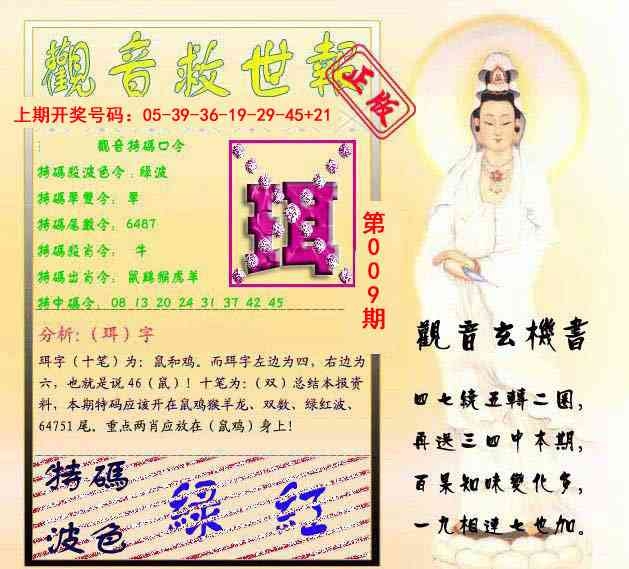 觀音救世報
正版
上期开奖号码：05-39-36-19-29-45+21
觀音特碼口令
特碼殺波色令：綠波
特碼單雙令： 單
特碼尾數令： 6487
特碼殺肖令： 牛
特碼出肖令： 鼠雞猴虎羊
特中碼令： 08 13 20 24 31 37 42 45
珥
第009期
分析:（珥）字
珥字（十笔）为：鼠和鸡。而珥字左边为四，右边为
六，也就是说46（鼠）！十笔为：（双）总结本报资
料，本期特码应该开在鼠鸡猴羊龙、双数、绿红波、
64751 尾。重点两肖应放在（鼠鸡）身上！
特碼
波色
綠 紅
觀音玄機書
四七繞五轉二圈，
再送三四中本期，
百果知味變化多，
一九相連七也加。